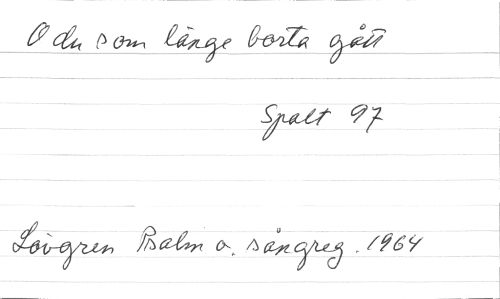 O du som länge borta gått
Spalt 97
Lövgren Psalm o. sångreg. 1964